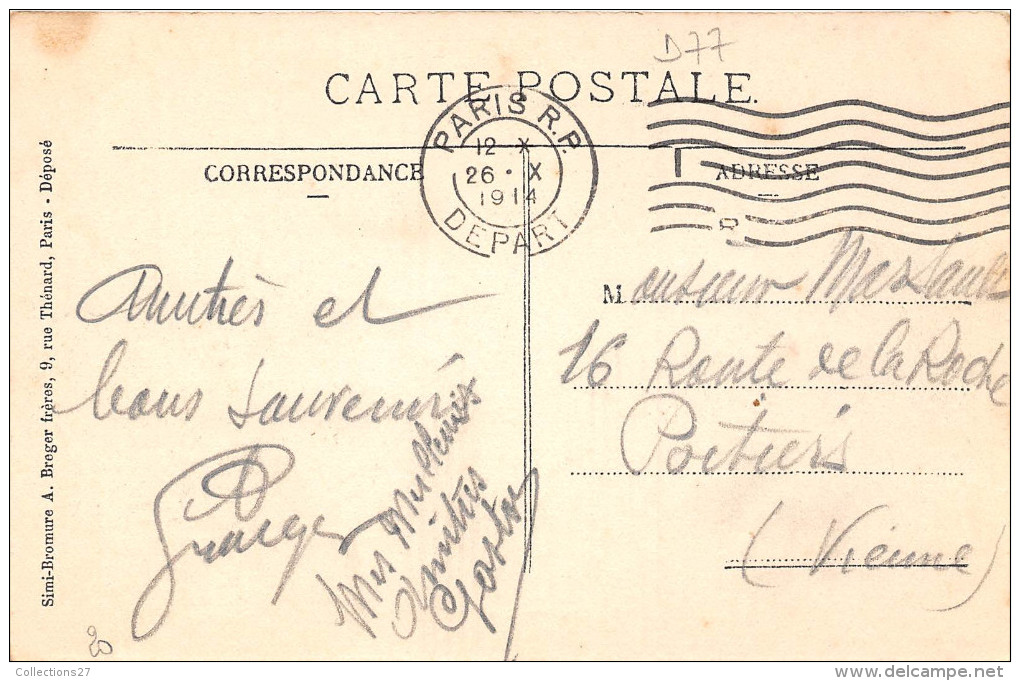 D77
CARTE POSTALE.
PARIS R.P.
12 X
26 · X
1914
DEPART
CORRESPONDANCE
ADRESSE
Simi-Bromure A. Breger frères, 9, rue Thénard, Paris - Déposé
Amitiés et
bons souvenirs
Mes Meilleures
Amitiés
Gaston
Monsieur
16 Route de la Roche
Poitiers
(Vienne)
20
Collections27
www.delcampe.net